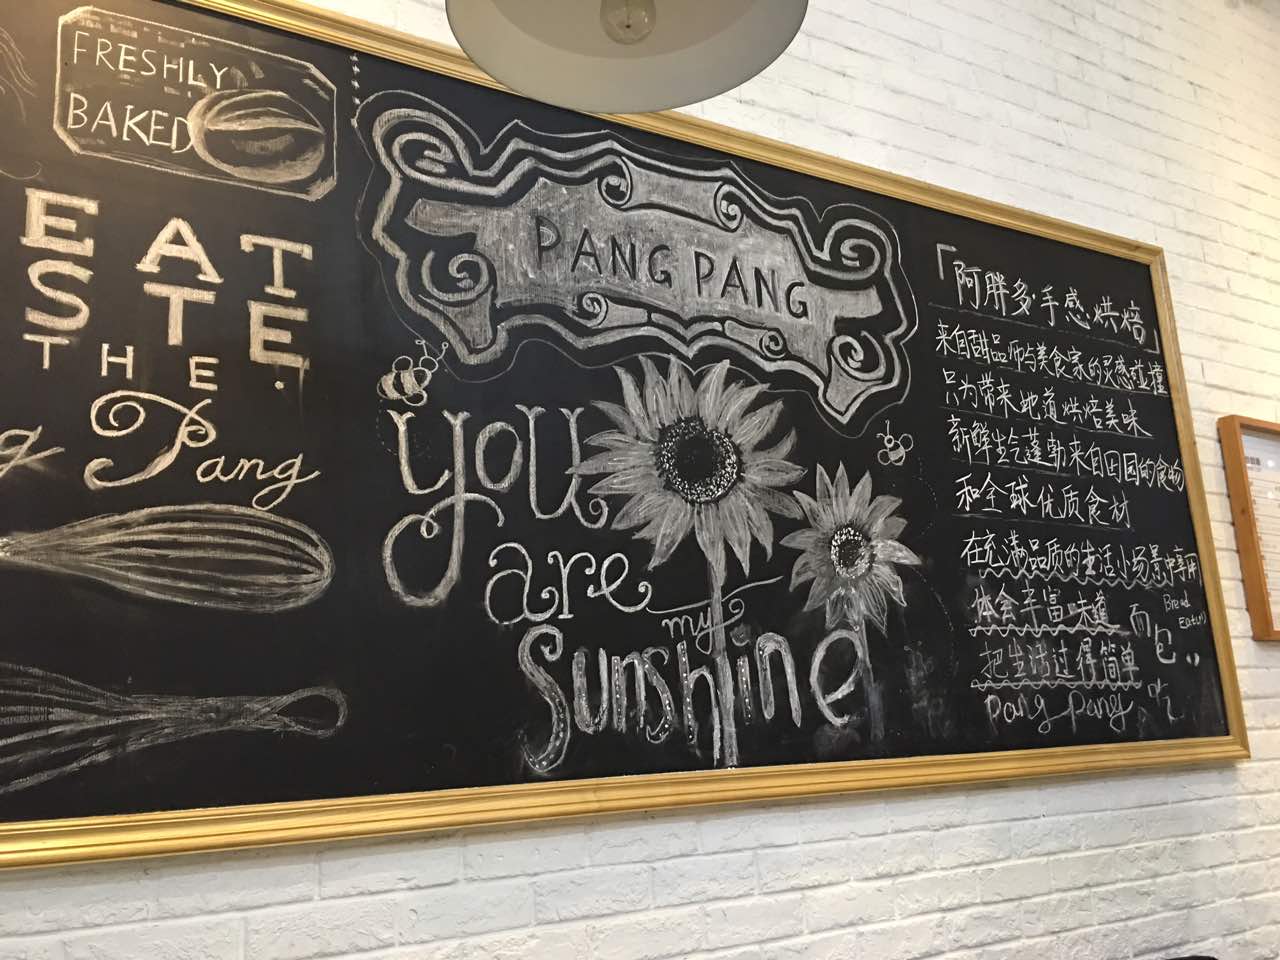 FRESHLY
BAKED
EAT
STE.
THE
Pang
PANG PANG
you
are
my
Sunshine
「阿胖多·手感·烘焙」
来自甜品师与美食家的灵感碰撞
只为带来地道烘焙美味
新鲜生气蓬勃来自田园的食物
和全球优质食材
在充满品质的生活小场景中享用
体会丰富味道
把生活过得简单
面包
Bread
pang pang 吃